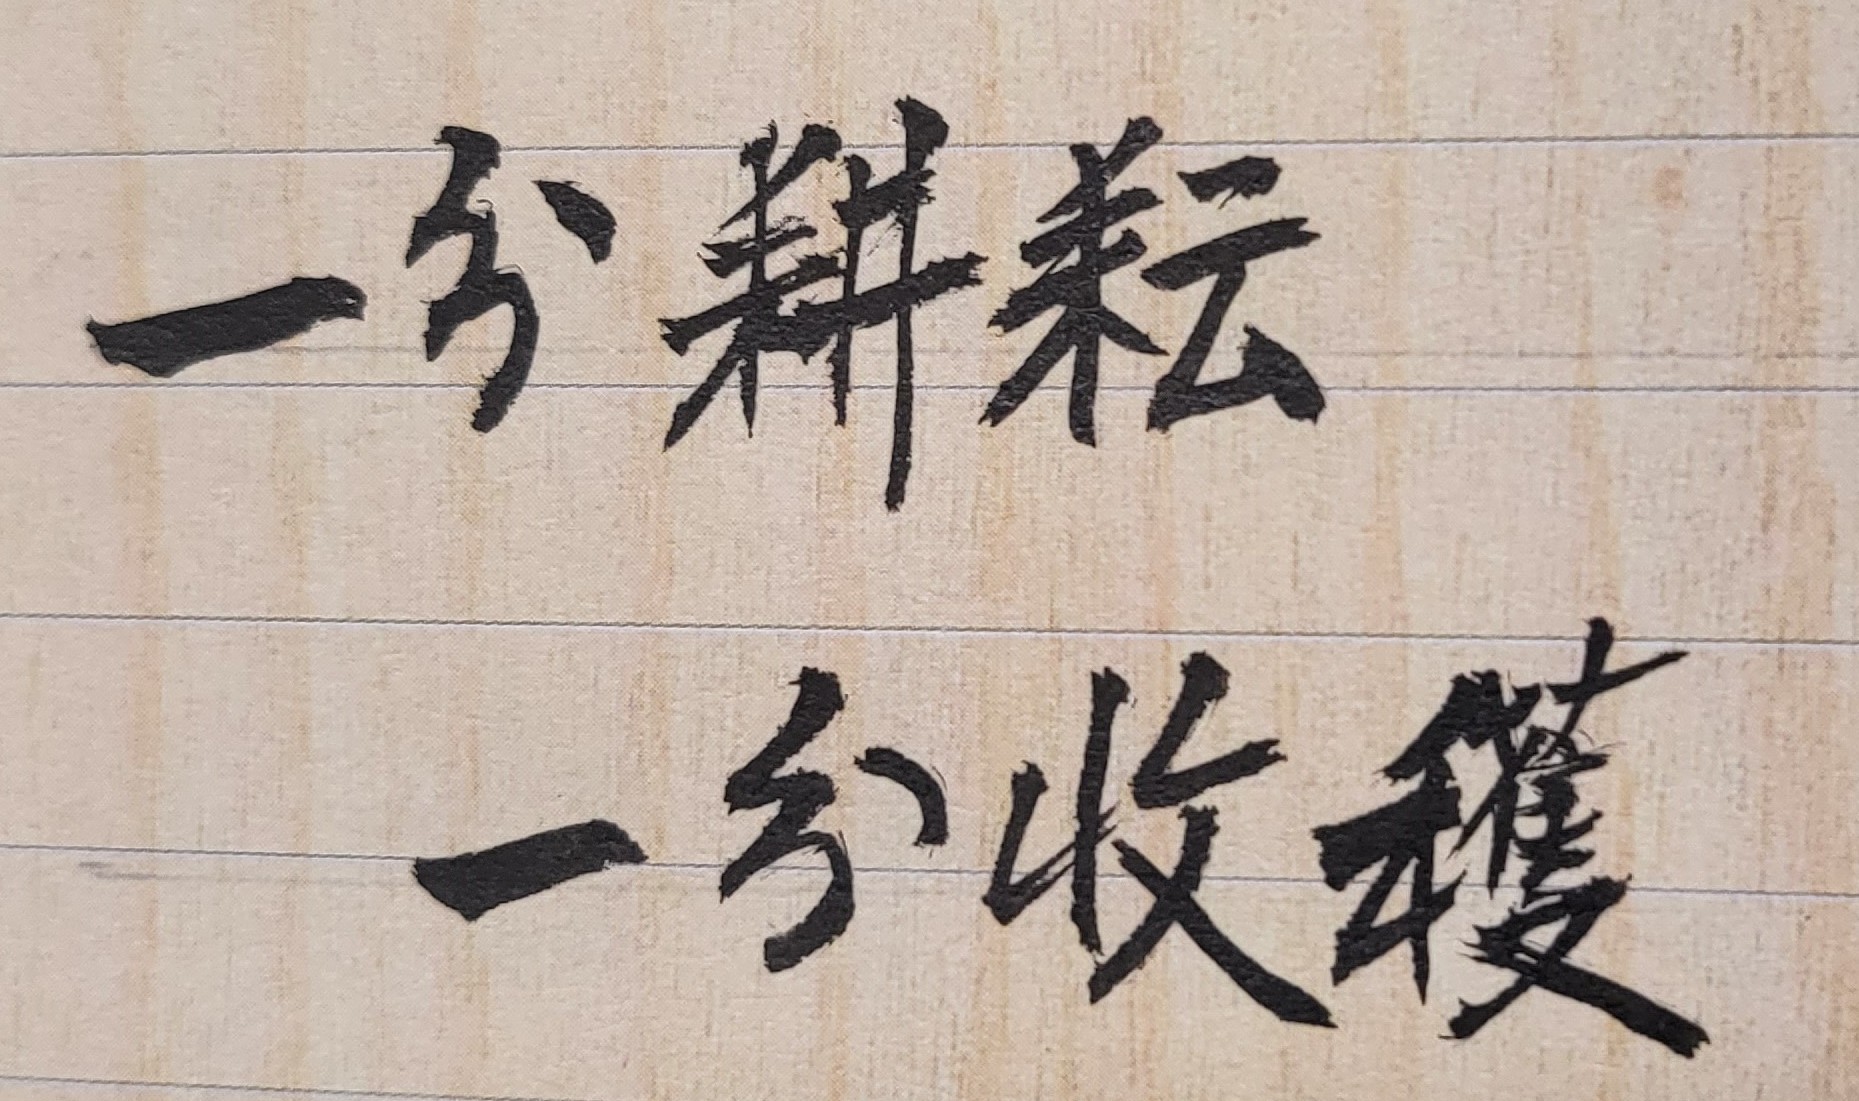 一分耕耘
一分收穫